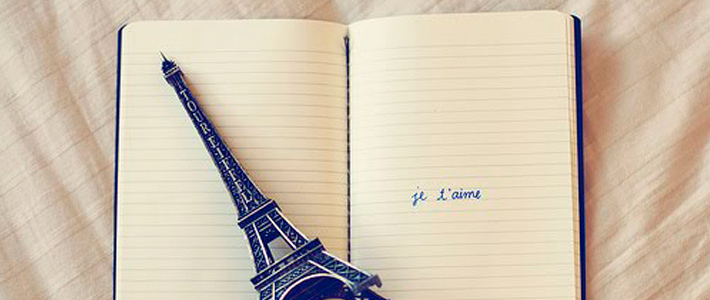 TOUR EIFFEL
je t'aime